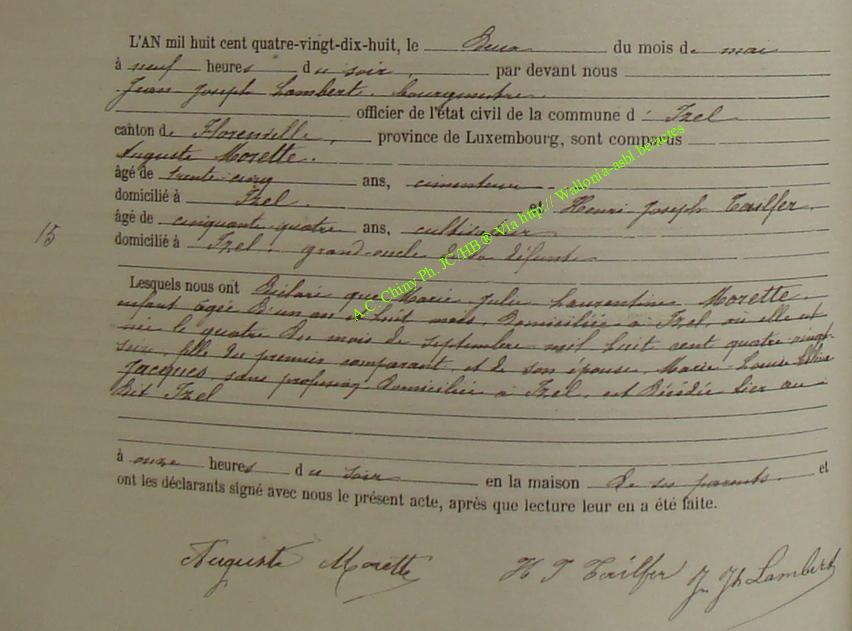 L'AN mil huit cent quatre-vingt-dix-huit, le Deux du mois de mai
à neuf heures du soir, par devant nous
Jean Joseph Lambert, bourgmestre
officier de l'état civil de la commune d'Izel
canton de Florenville, province de Luxembourg, sont comparus
Auguste Morette.
âgé de trente cinq ans, cimenteur
domicilié à Izel. et Henri Joseph Tailfer.
âgé de cinquante quatre ans, cultivateur
15
domicilié à Izel, grand-oncle de la défunte
Lesquels nous ont Déclaré que Marie Julie Laurentine Morette.
enfant âgée d'un an et huit mois, domiciliée à Izel, où elle est
née le quatre du mois de septembre mil huit cent quatre-vingt-
seize, fille du premier comparant, et de son épouse, Marie-Louise
Jacques, sans profession, domiciliée à Izel, est décédée hier au
dit Izel
à onze heures du soir en la maison de ses parents. et
ont les déclarants signé avec nous le présent acte, après que lecture leur en a été faite.
Auguste Morette H J Tailfer J. Jh Lambert
A.C Chiny Ph. JC/HB ® Via http// Wallonia-asbl.be/actes